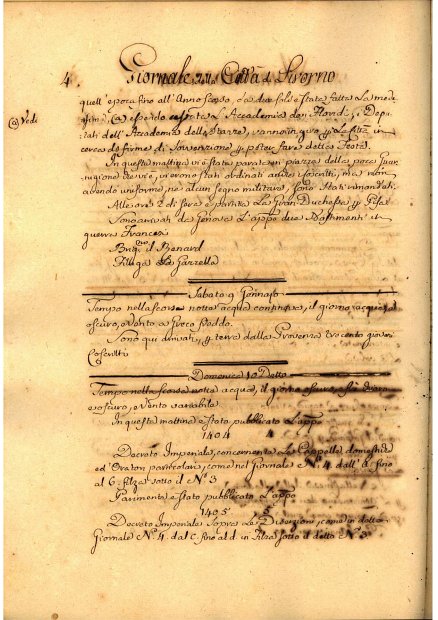 4. Giornale della Città di Livorno
quell'epoca fino all'Anno scorso, o a due soldi è stata fatta la mede
(a) Vedi
sima. (a) essendo cessata l'Accademia dei Floridi, i Depu
tati dell'Accademia
cerca di firme di Sovvenzione per poter fare delle Feste.
In questa mattina vi è stata parata in piazza della poca Guar
nigione che vi è, vi erono stati ordinati anche i Coscritti, ma non
avendo uniforme, nè alcun segno militare, sono stati rimandati.
Alle ore 2 di sera è partita La Gran Duchessa per Pisa
Sono arrivati da Genova L'appo due Bastimenti da
guerra Francesi
Brigno il Renard
Filuga La Gazzella
Sabato 9 Gennaio
Tempo nella scorsa notte acqua continua, il giorno acqua, e
oscuro, e Vento a Greco freddo.
Sono qui arrivati per terra dalla Provenza trecento giovani
Coscritti
Domenica 10 Detto
Tempo nella scorsa notte acqua, il giorno oscuro,
e oscuro, e Vento variabile
In questa mattina è stato pubblicato L'appo
1404
Decreto Imperiale, concernente Le Cappelle domestiche
ed Oratori particolari, come nel Giornale N.º 4. dall' a fino
al 6. filza sotto il N.º 3
Parimente è stato pubblicato L'appo
1405
Decreto Imperiale Sopra Le Diserzioni, come in detto
Giornale N.º 4. dal c. fino al d. in Filza sotto il detto N.º 3